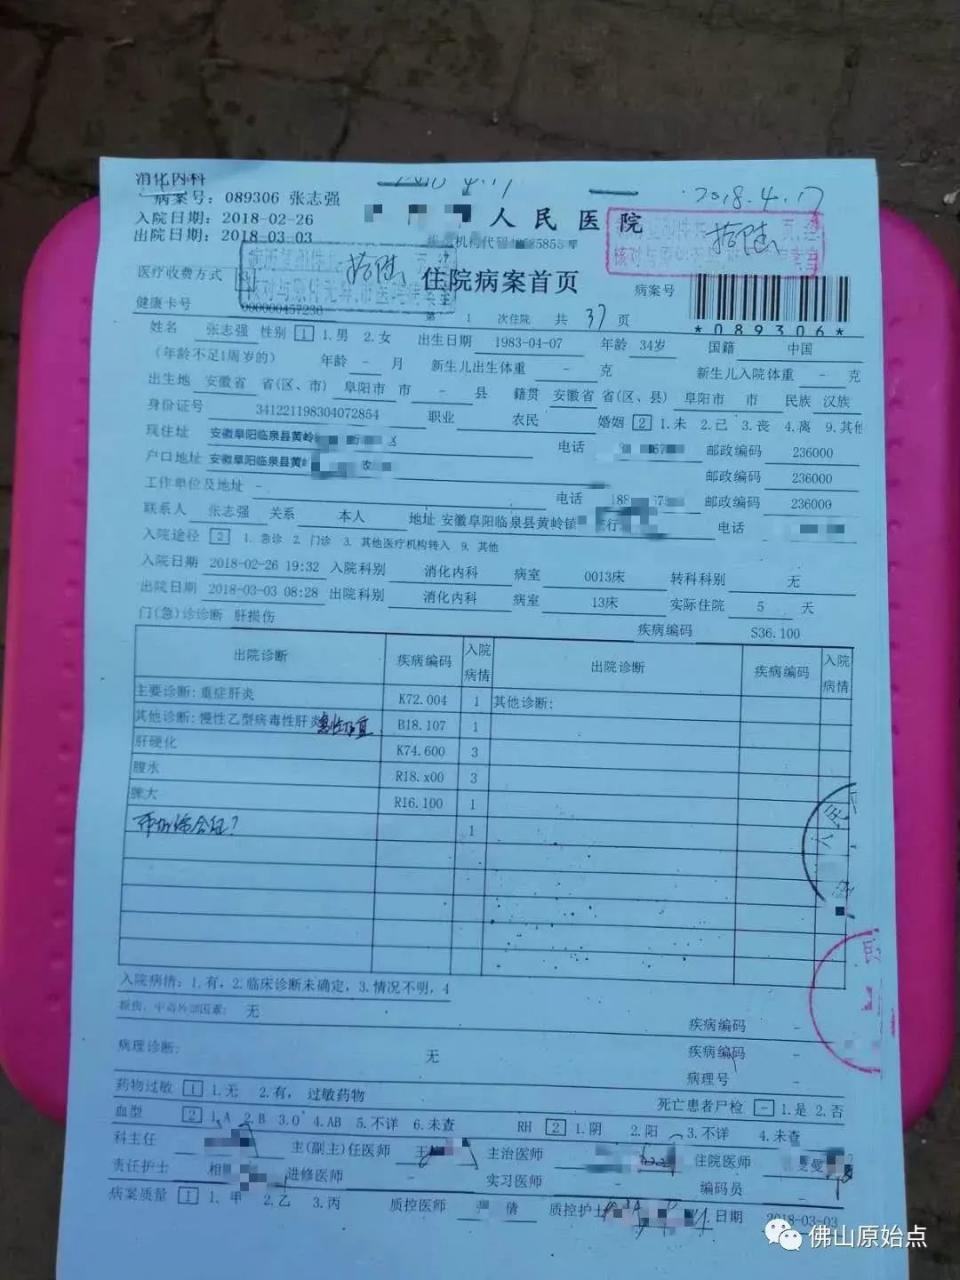 消化内科
2018.4.17
病案号：089306 张志强
入院日期：2018-02-26
出院日期：2018-03-03
人民医院
住院病案首页
医疗收费方式
病案号
*089306*
健康卡号
第 1 次住院 共 37 页
姓名 张志强 性别 1 1.男 2.女 出生日期 1983-04-07 年龄 34岁 国籍 中国
（年龄不足1周岁的） 年龄 - 月 新生儿出生体重 - 克 新生儿入院体重 - 克
出生地 安徽省 省(区、市) 阜阳市 市 - 县 籍贯 安徽省 省(区、县) 阜阳市 市 民族 汉族
身份证号 341221198304072854 职业 农民 婚姻 2 1.未 2.已 3.丧 4.离 9.其他
现住址 安徽阜阳临泉县黄岭 电话 邮政编码 236000
户口地址 安徽阜阳临泉县黄岭 邮政编码 236000
工作单位及地址 - 电话 邮政编码 236000
联系人 张志强 关系 本人 地址 安徽阜阳临泉县黄岭镇 电话
入院途径 2 1. 急诊 2. 门诊 3. 其他医疗机构转入 9. 其他
入院日期 2018-02-26 19:32 入院科别 消化内科 病室 0013床 转科科别 无
出院日期 2018-03-03 08:28 出院科别 消化内科 病室 13床 实际住院 5 天
门(急)诊诊断 肝损伤 疾病编码 S36.100
出院诊断 疾病编码 入院病情 出院诊断 疾病编码 入院病情
主要诊断: 重症肝炎 K72.004 1 其他诊断:
其他诊断: 慢性乙型病毒性肝炎 B18.107 1
肝硬化 K74.600 3
腹水 R18.x00 3
脾大 R16.100 1
1
入院病情: 1.有, 2.临床诊断未确定, 3.情况不明, 4
损伤、中毒外部因素: 无 疾病编码 -
病理诊断: 无 疾病编码 -
病理号 -
药物过敏 1 1.无 2.有, 过敏药物 死亡患者尸检 - 1.是 2.否
血型 2 1.A 2.B 3.O 4.AB 5.不详 6.未查 RH 2 1.阴 2.阳 3.不详 4.未查
科主任 主(副主)任医师 主治医师 住院医师
责任护士 进修医师 - 实习医师 - 编码员 -
病案质量 1 1.甲 2.乙 3.丙 质控医师 倩 质控护士 日期 2018-03-03
佛山原始点